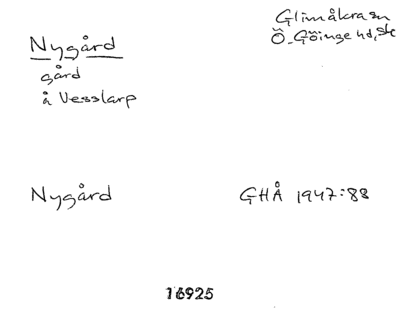 Nygård
gård
å Vesslarp
Glimåkra sn
Ö. Göinge hd, Sk
Nygård
GHÅ 1947:88
16925